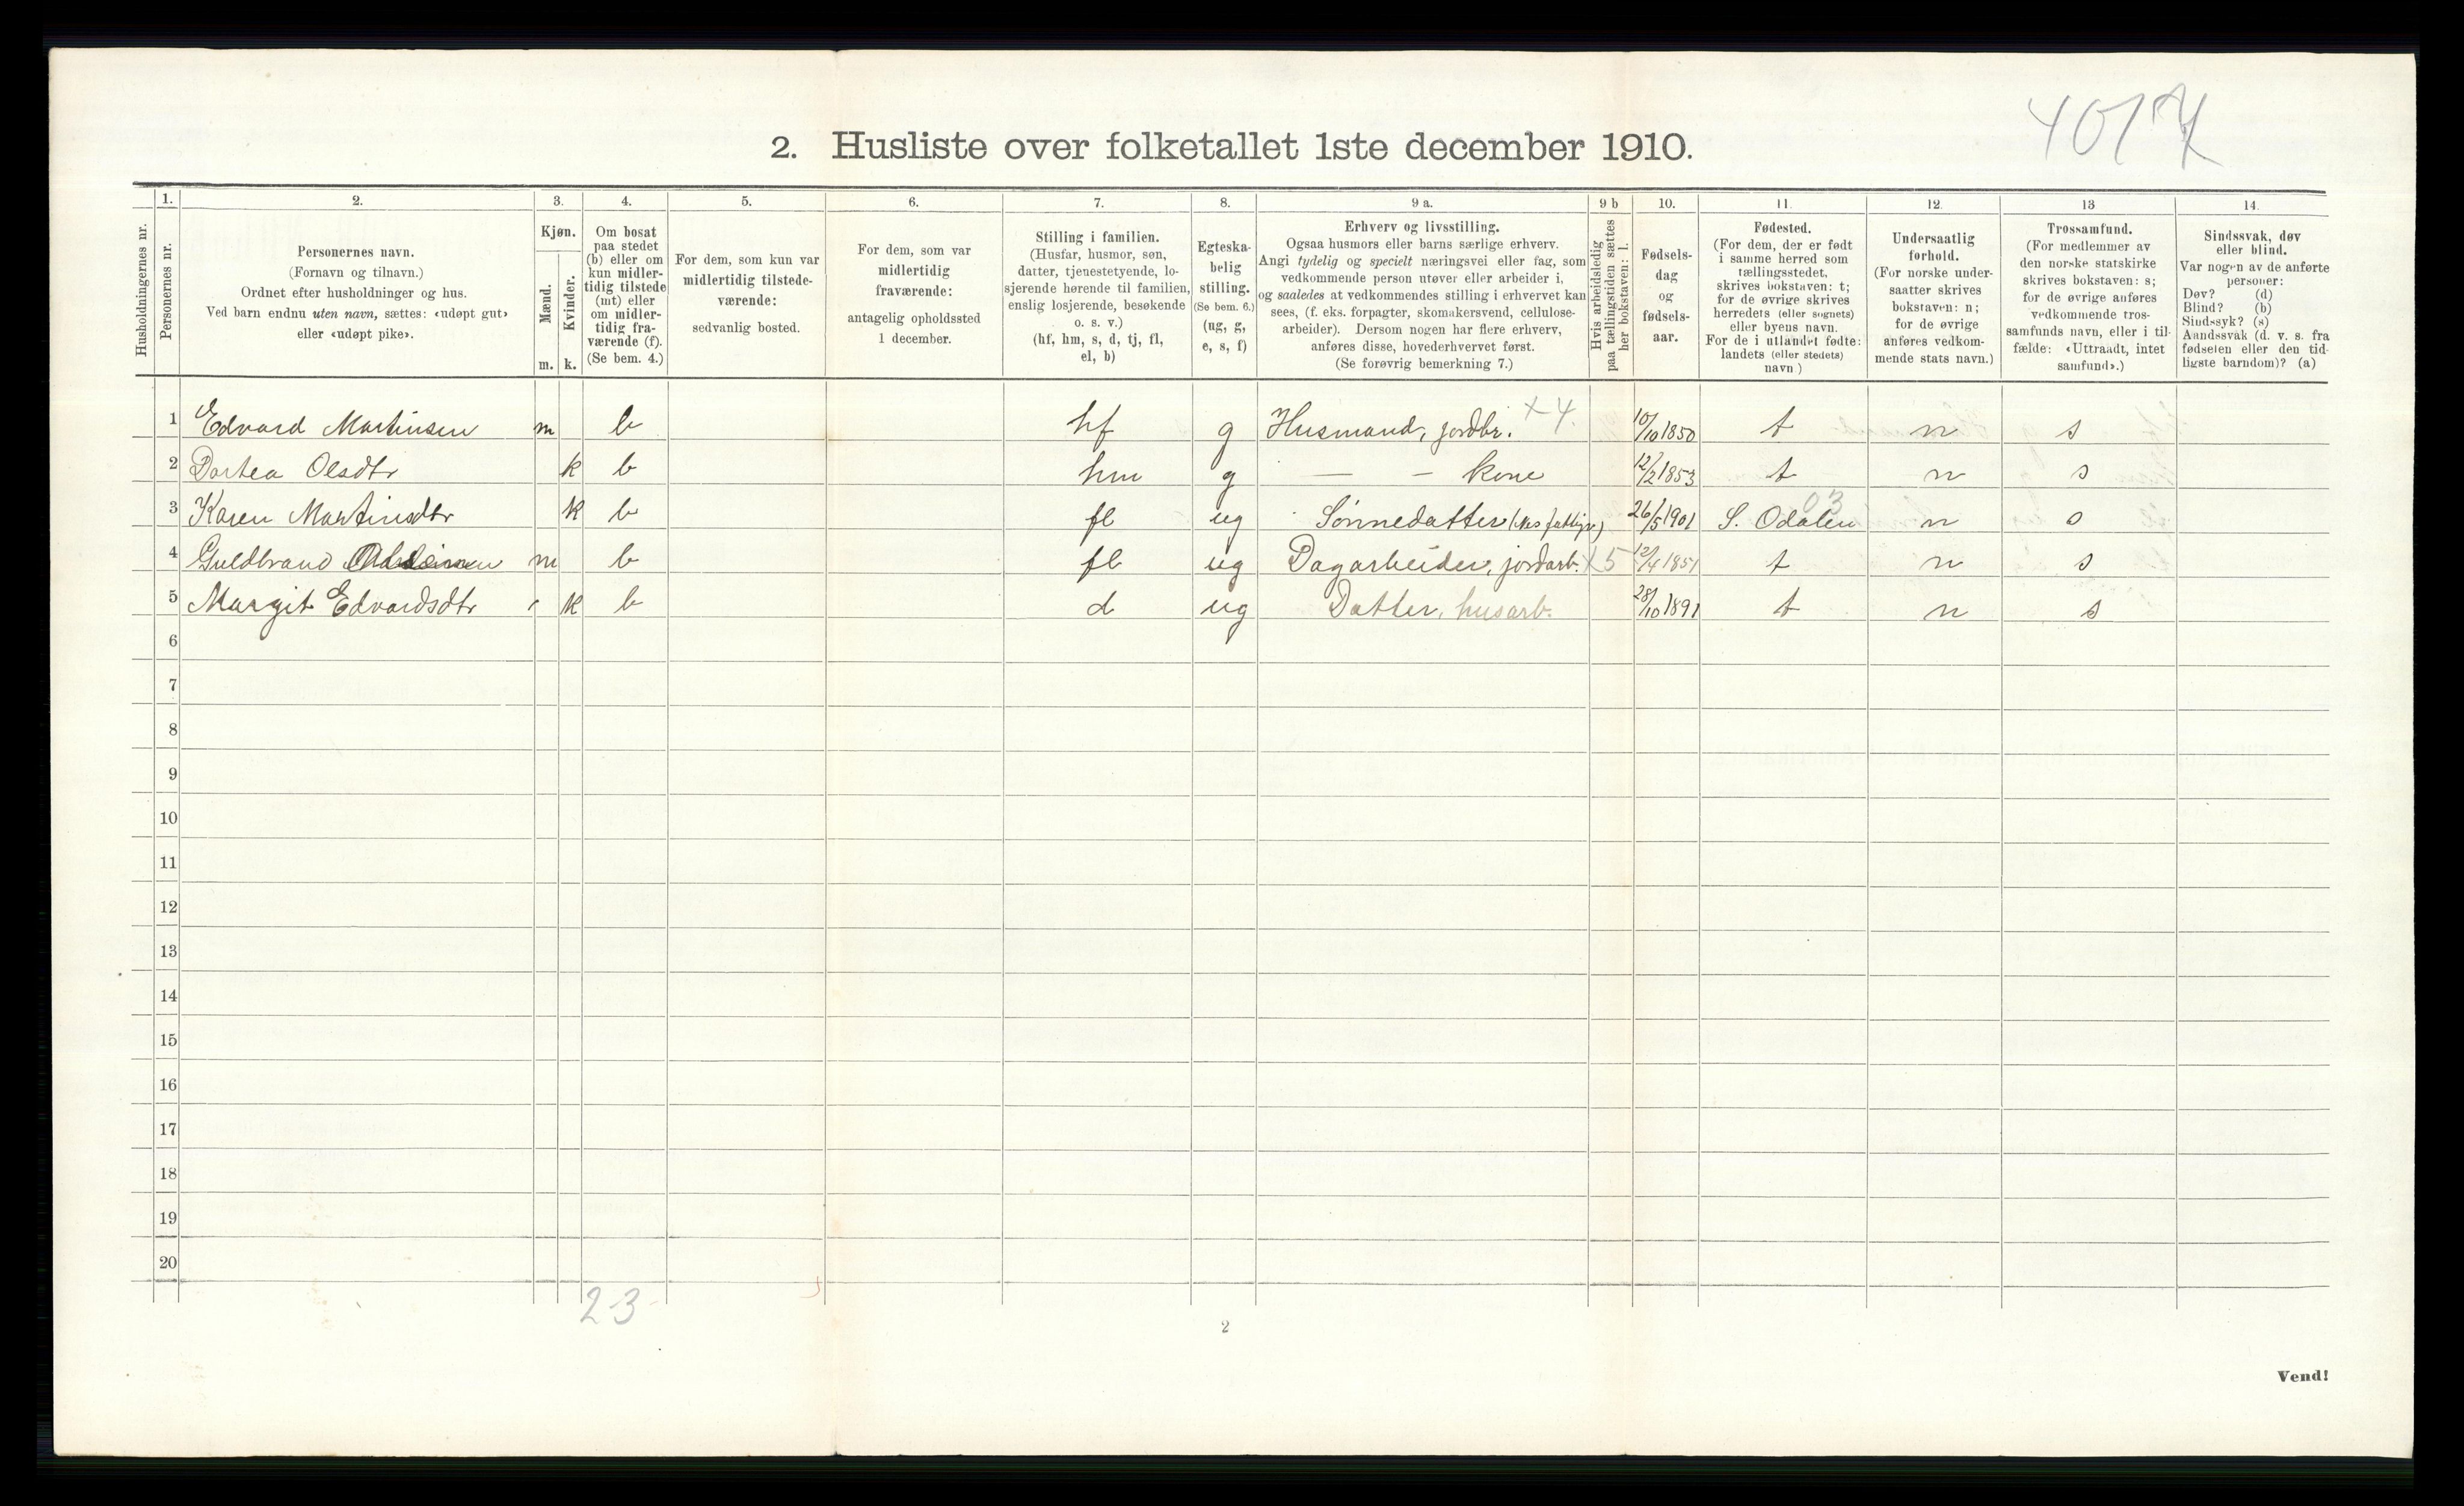 4017
2. Husliste over folketallet 1ste december 1910.
Husholdningernes nr.
1.
Personernes nr.
2.
Personernes navn.
(Fornavn og tilnavn.)
Ordnet efter husholdninger og hus.
Ved barn endnu uten navn, sættes: «udøpt gut»
eller «udøpt pike».
3.
Kjøn.
Mænd.
m.
Kvinder.
k.
4.
Om bosat
paa stedet
(b) eller om
kun midler-
tidig tilstede
(mt) eller
om midler-
tidig fra-
værende (f).
(Se bem. 4.)
5.
For dem, som kun var
midlertidig tilstede-
værende:
sedvanlig bosted.
6.
For dem, som var
midlertidig
fraværende:
antagelig opholdssted
1 december.
7.
Stilling i familien.
(Husfar, husmor, søn,
datter, tjenestetyende, lo-
sjerende hørende til familien,
enslig losjerende, besøkende
o. s. v.)
(hf, hm, s, d, tj, fl,
el, b)
8.
Egteska-
belig
stilling.
(Se bem. 6.)
(ug, g,
e, s, f)
9 a.
Erhverv og livsstilling.
Ogsaa husmors eller barns særlige erhverv.
Angi tydelig og specielt næringsvei eller fag, som
vedkommende person utøver eller arbeider i,
og saaledes at vedkommendes stilling i erhvervet kan
sees, (f. eks. forpagter, skomakersvend, cellulose-
arbeider). Dersom nogen har flere erhverv,
anføres disse, hovederhvervet først.
(Se forøvrig bemerkning 7.)
9 b
Hvis arbeidsledig
paa tællingstiden sættes
her bokstaven: l.
10.
Fødsels-
dag
og
fødsels-
aar.
11.
Fødested.
(For dem, der er født
i samme herred som
tællingsstedet,
skrives bokstaven: t;
for de øvrige skrives
herredets (eller sognets)
eller byens navn.
For de i utlandet fødte:
landets (eller stedets)
navn)
12.
Undersaatlig
forhold.
(For norske under-
saatter skrives
bokstaven: n;
for de øvrige
anføres vedkom-
mende stats navn.)
13
Trossamfund.
(For medlemmer av
den norske statskirke
skrives bokstaven: s;
for de øvrige anføres
vedkommende tros-
samfunds navn, eller i til-
fælde: «Uttraadt, intet
samfund».)
14.
Sindssvak, døv
eller blind.
Var nogen av de anførte
personer:
Døv? (d)
Blind? (b)
Sindssyk? (s)
Aandssvak (d. v. s. fra
fødselen eller den tid-
ligste barndom)? (a)
1 Edvard Martinsen m b hf g Husmand, jordbr. x 4. 10/10 1850 t n s
2 Dortea Olsdtr k b hm g — – kone 12/2 1853 t n s
3 Karen Martinsdtr k b fl ug Sønnedatter 26/5 1901 S. Odalen 03 n s
4 Guldbrand m b fl ug Dagarbeider, jordarb. x 5 12/4 1851 t n s
5 Margit Edvardsdtr k b d ug Datter, husarb. 28/10 1891 t n s
6
7
8
9
10
11
12
13
14
15
16
17
18
19
20
2-3
2
Vend!